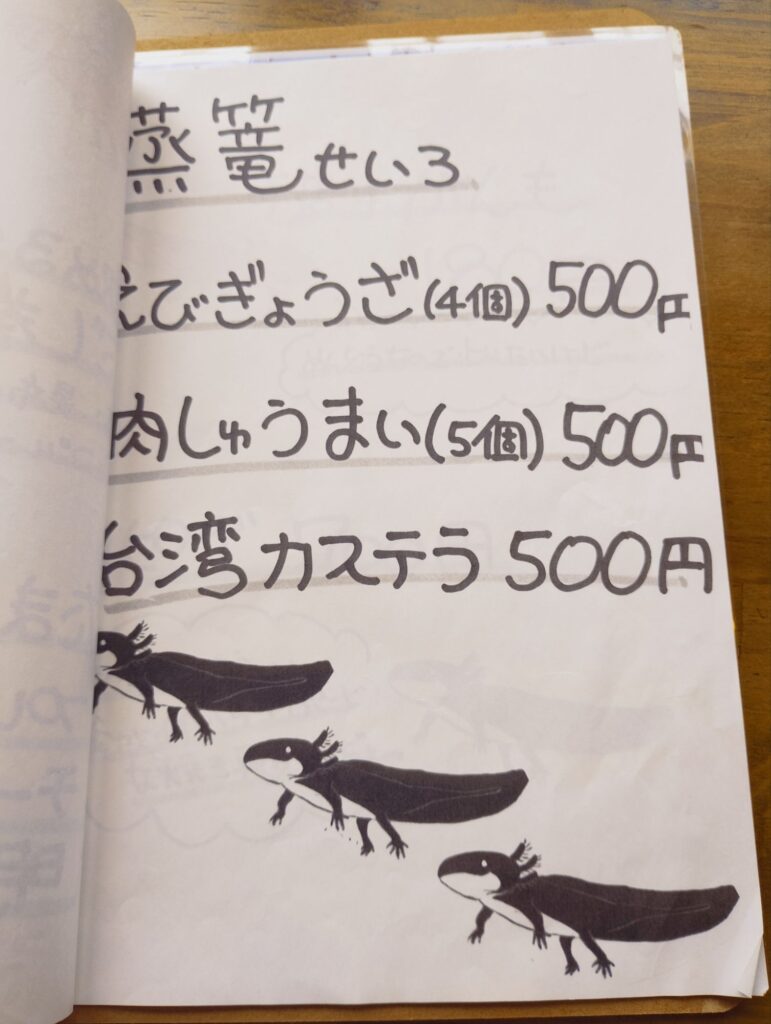 蒸篭せいろ
えびぎょうざ(4個) 500円
肉しゅうまい(5個) 500円
台湾カステラ 500円